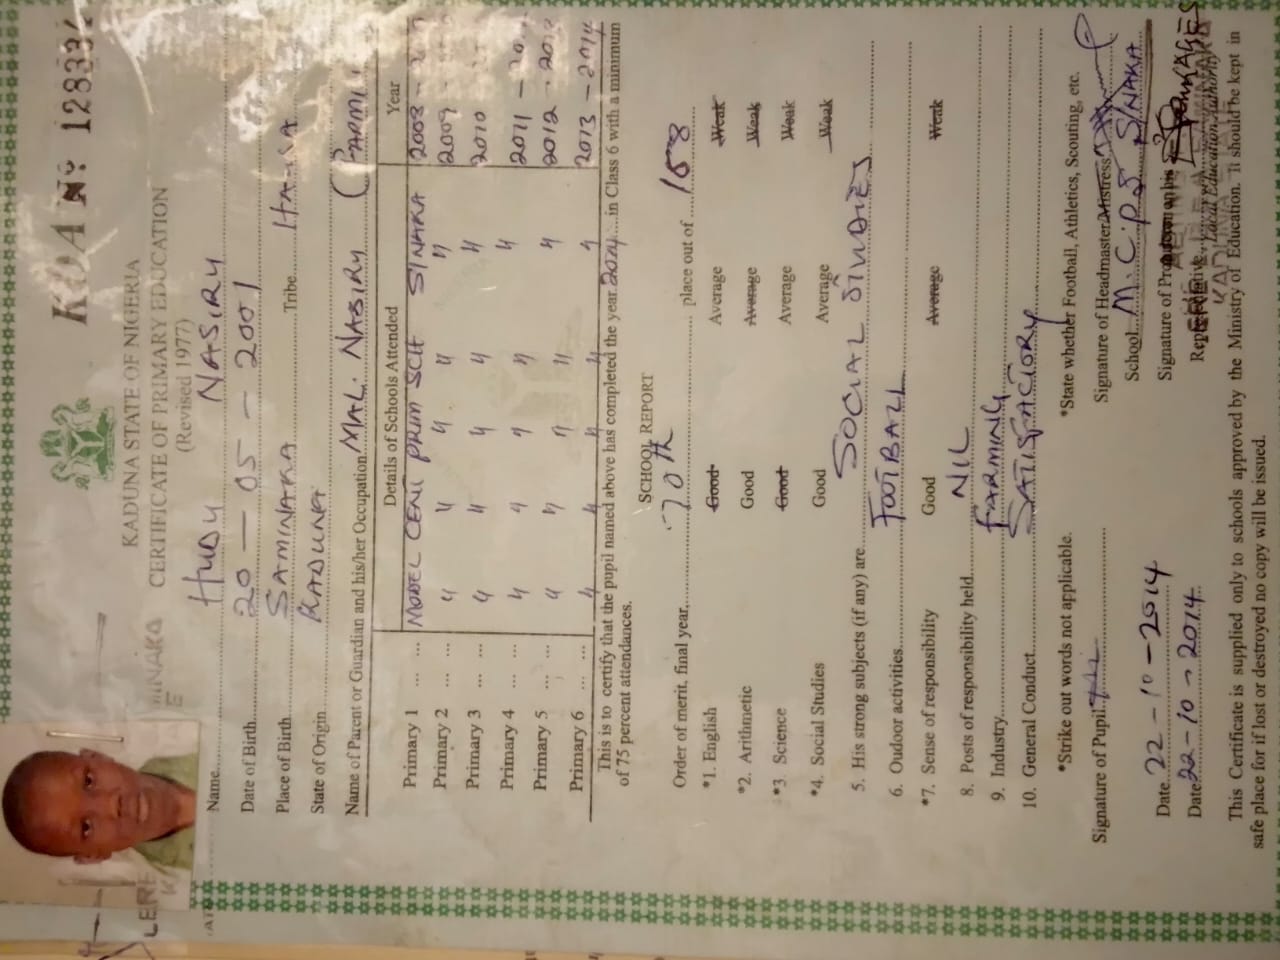 KDA Nº 128332
KADUNA STATE OF NIGERIA
CERTIFICATE OF PRIMARY EDUCATION
(Revised 1977)
Name HUDU NASIRU
Date of Birth 20 - 05 - 2001
Place of Birth SAMINAKA Tribe HAUSA
State of Origin KADUNA
Name of Parent or Guardian and his/her Occupation MAL. NASIRU (FARMI
Details of Schools Attended Year
Primary 1 ... ... MODEL CENT PRIM SCH S/NAKA 2008 -
Primary 2 ... ... " " " " " 2009 -
Primary 3 ... ... " " " " " 2010
Primary 4 ... ... " " " " " 2011 -
Primary 5 ... ... " " " " " 2012 -
Primary 6 ... ... " " " " " 2013 - 2014
This is to certify that the pupil named above has completed the year 2014 in Class 6 with a minimum
of 75 percent attendances.
SCHOOL REPORT
Order of merit, final year, 70th place out of 188
*1. English Good Average Weak
*2. Arithmetic Good Average Weak
*3 Science Good Average Weak
*4. Social Studies Good Average Weak
5. His strong subjects (if any) are SOCIAL STUDIES
6. Oudoor activities FOOTBALL
*7. Sense of responsibility Good Average Weak
8. Posts of responsibility held NIL
9. Industry FARMING
10. General Conduct SATISFACTORY
*Strike out words not applicable. *State whether Football, Athletics, Scouting, etc.
Signature of Pupil Signature of Headmaster/Mistress
School M.C.P.S S/NAKA
Date 22 - 10 - 2014 Signature of
Date 22 - 10 - 2014 Representative, Local Education Authority
This Certificate is supplied only to schools approved by the Ministry of Education. It should be kept in
safe place for if lost or destroyed no copy will be issued.